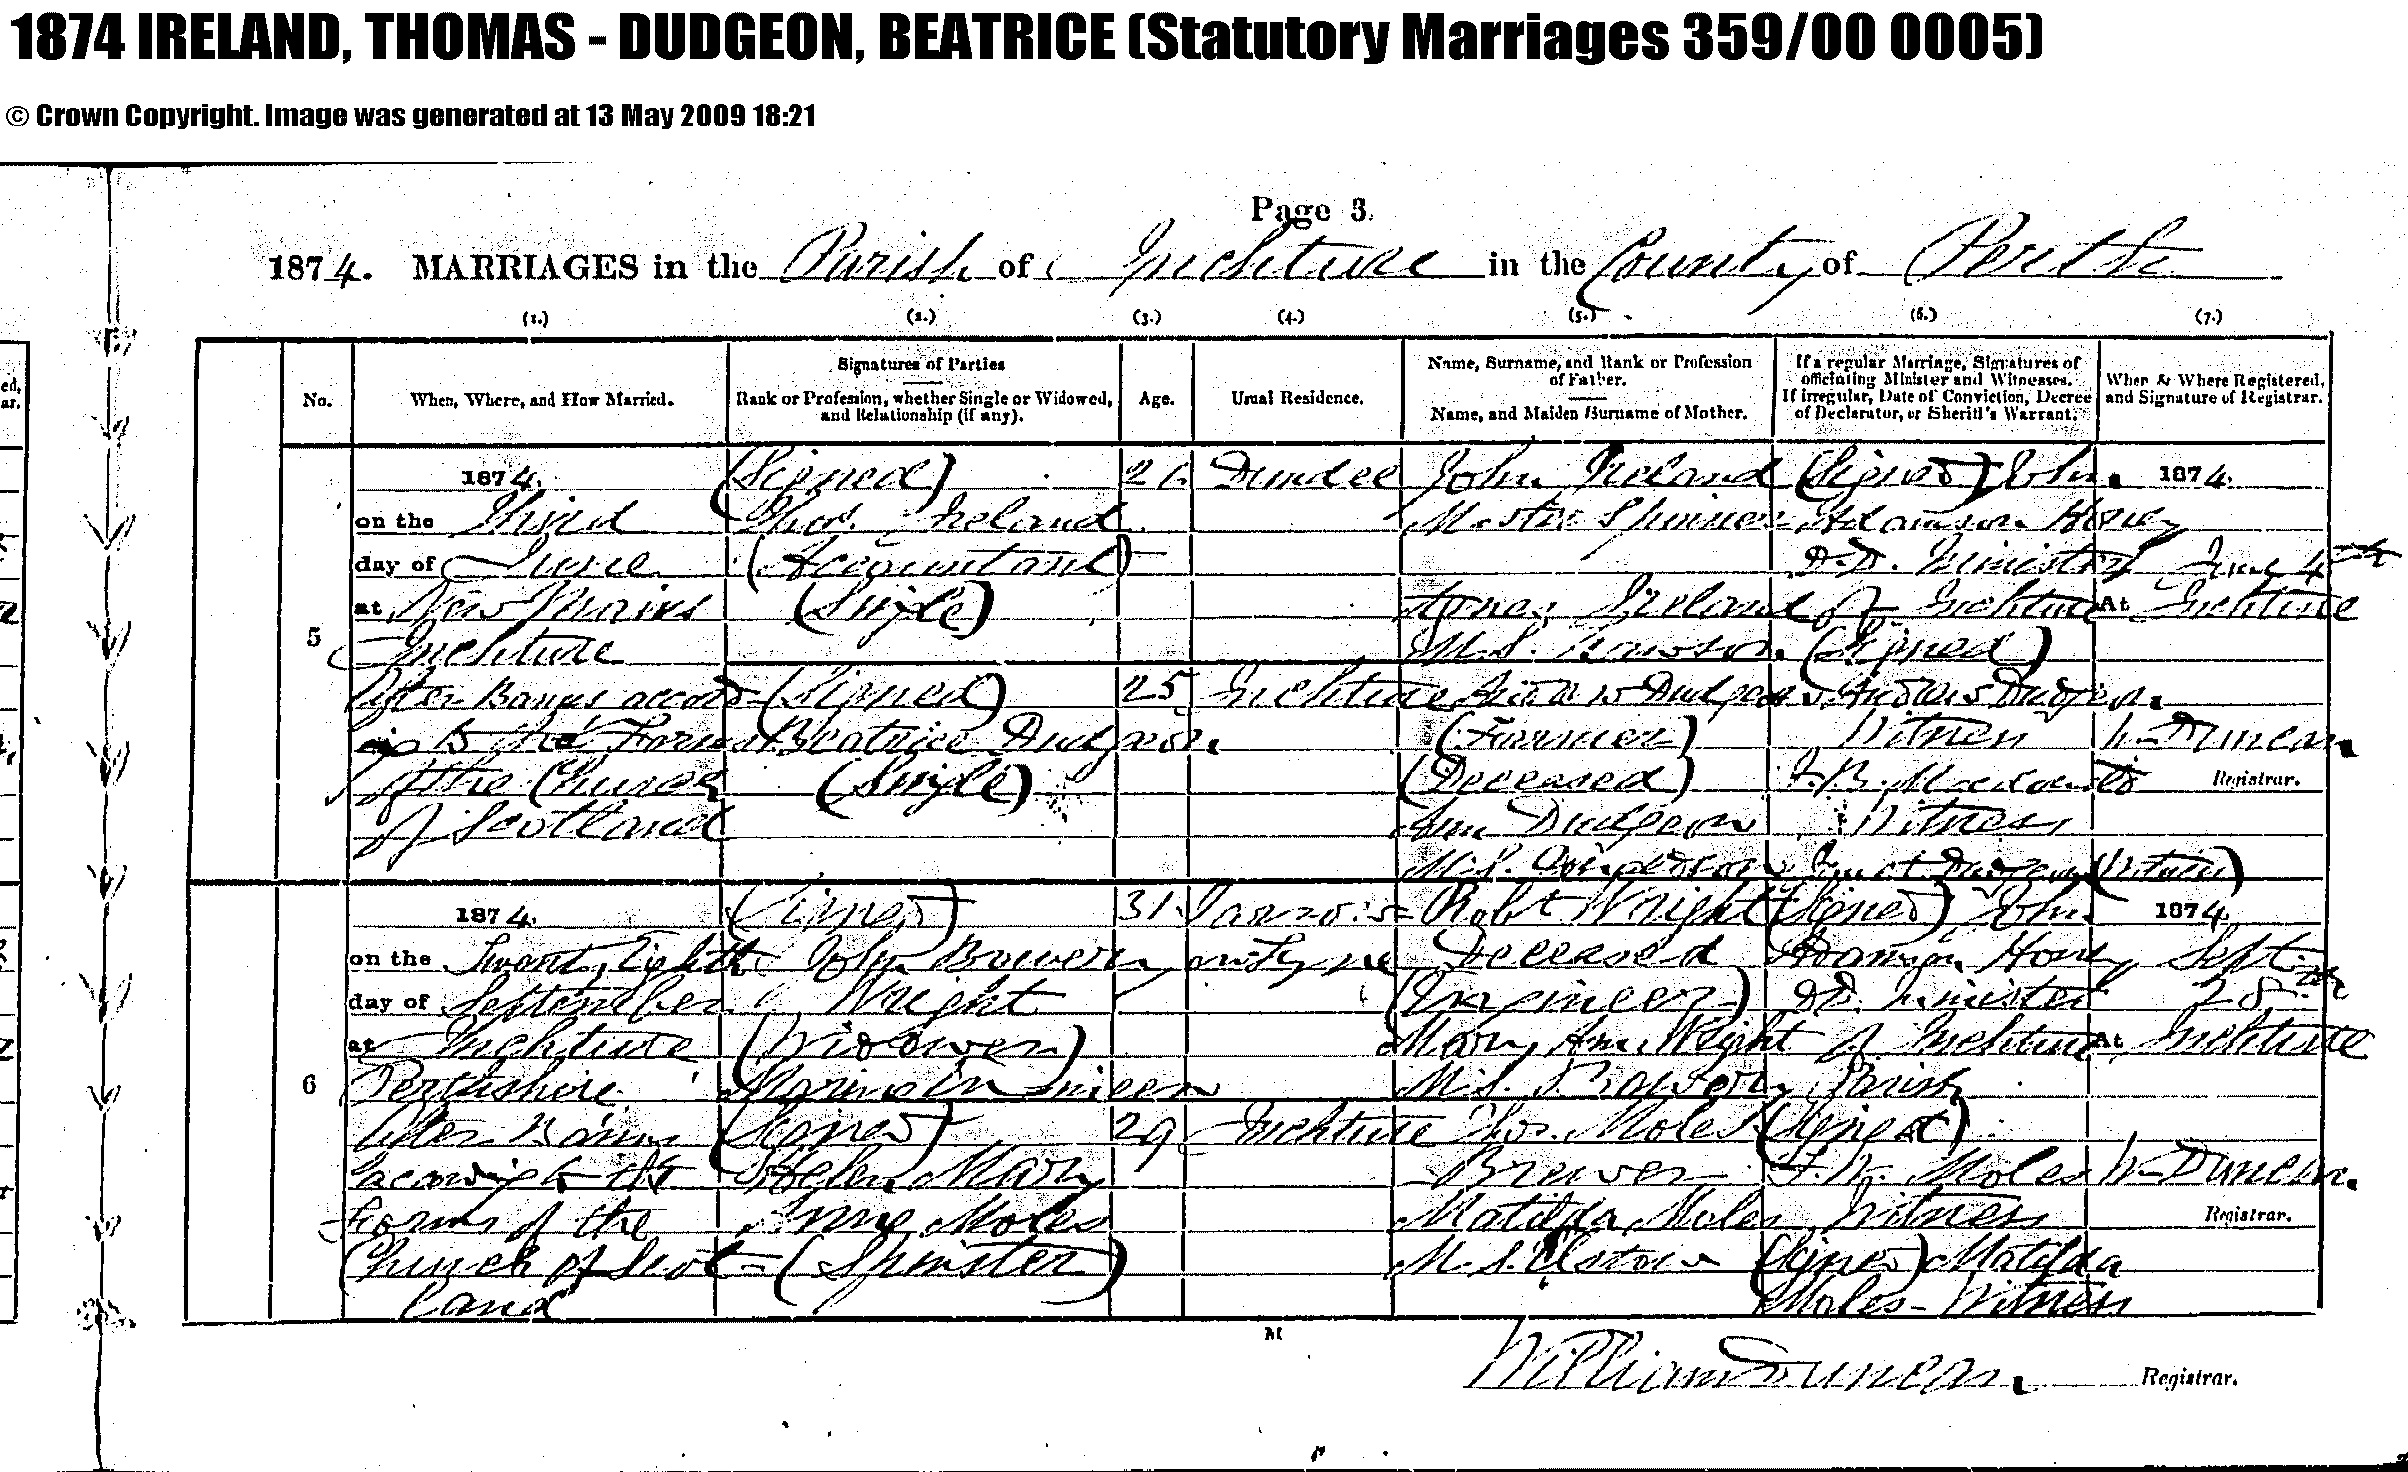 1874 IRELAND, THOMAS - DUDGEON, BEATRICE (Statutory Marriages 359/00 0005)
© Crown Copyright. Image was generated at 13 May 2009 18:21
Page 3.
1874. MARRIAGES in the Parish of Inchture in the County of Perth
(1.) (2.) (3.) (4.) (5.) (6.) (7.)
No.
When, Where, and How Married.
Signatures of Parties
Rank or Profession, whether Single or Widowed,
and Relationship (if any).
Age.
Usual Residence.
Name, Surname, and Rank or Profession
of Father.
Name, and Maiden Surname of Mother.
If a regular Marriage, Signatures of
officiating Minister and Witnesses.
If irregular, Date of Conviction, Decree
of Declarator, or Sheriff's Warrant.
When & Where Registered,
and Signature of Registrar.
5
1874.
on the Third
day of June
at New Mains
Inchture
After Banns accord-
ing to the Forms
of the Church
of Scotland
(Signed)
Thos. Ireland
(Accountant)
(Single)
(Signed)
Beatrice Dudgeon.
(Single)
25
Dundee
Inchture
John Ireland
Master Spinner
Agnes Ireland
M.S.
Andrew Dudgeon
(Farmer)
(Deceased)
Ann Dudgeon
M.S.
(Signed) John
Adamson Honey
D.D. Minister
of Inchture
(Signed)
Andrew Dudgeon.
Witness
Witness
Dudgeon (Witness)
1874.
June 4th
At Inchture
W. Duncan.
Registrar.
6
1874.
on the Twenty Eighth
day of September
at Inchture
Perthshire.
After Banns
according to the
Forms of the
Church of Scot-
land
(Signed)
John Bowery
Wright
(Widower)
Marine Engineer
(Signed)
Helen Mary
Anne Moles
(Spinster)
31.
29
Jarrow
on Tyne
Inchture
Robt Wright
Deceased
(Engineer)
Mary Ann Wright
M.S. Bowery
Thos. Moles
Brewer
Matilda Moles
M.S.
(Signed) John
Adamson Honey
D.D. Minister
of Inchture
Parish
(Signed)
Moles
Witness
(Signed) Matilda
Moles - Witness
1874.
Sept.
28th
At Inchture
W. Duncan.
Registrar.
William Duncan. Registrar.